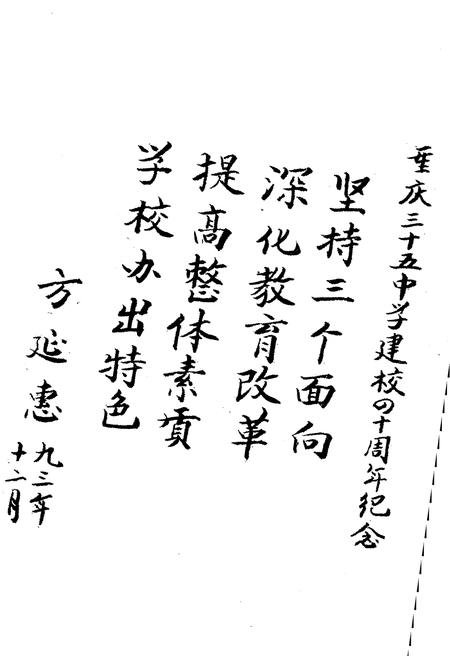 重庆三十五中学建校四十周年纪念
坚持三个面向
深化教育改革
提高整体素质
学校办出特色
方延惠
九三年
十二月